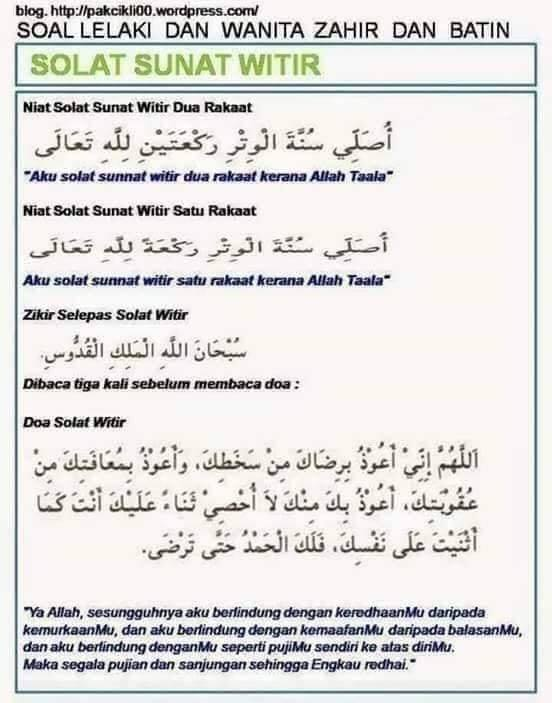 blog. http://pakcikli00.wordpress.com/
SOAL LELAKI DAN WANITA ZAHIR DAN BATIN
SOLAT SUNAT WITIR
Niat Solat Sunat Witir Dua Rakaat
أُصَلِّي سُنَّةَ الْوِتْرِ رَكْعَتَيْنِ لِلَّهِ تَعَالَى
"Aku solat sunnat witir dua rakaat kerana Allah Taala"
Niat Solat Sunat Witir Satu Rakaat
أُصَلِّي سُنَّةَ الْوِتْرِ رَكْعَةً لِلَّهِ تَعَالَى
Aku solat sunnat witir satu rakaat kerana Allah Taala"
Zikir Selepas Solat Witir
سُبْحَانَ اللَّهِ الْمَلِكِ الْقُدُّوسِ.
Dibaca tiga kali sebelum membaca doa :
Doa Solat Witir
اَللَّهُمَّ إِنِّيْ أَعُوْذُ بِرِضَاكَ مِنْ سَخَطِكَ، وَأَعُوْذُ بِمُعَافَتِكَ مِنْ
عُقُوْبَتِكَ، أَعُوْذُ بِكَ مِنْكَ لاَ أُحْصِيْ ثَنَاءً عَلَيْكَ أَنْتَ كَمَا
أَثْنَيْتَ عَلَى نَفْسِكَ، فَلَكَ الْحَمْدُ حَتَّى تَرْضَى.
"Ya Allah, sesungguhnya aku berlindung dengan keredhaanMu daripada
kemurkaanMu, dan aku berlindung dengan kemaafanMu daripada balasanMu,
dan aku berlindung denganMu seperti pujiMu sendiri ke atas diriMu.
Maka segala pujian dan sanjungan sehingga Engkau redhai."